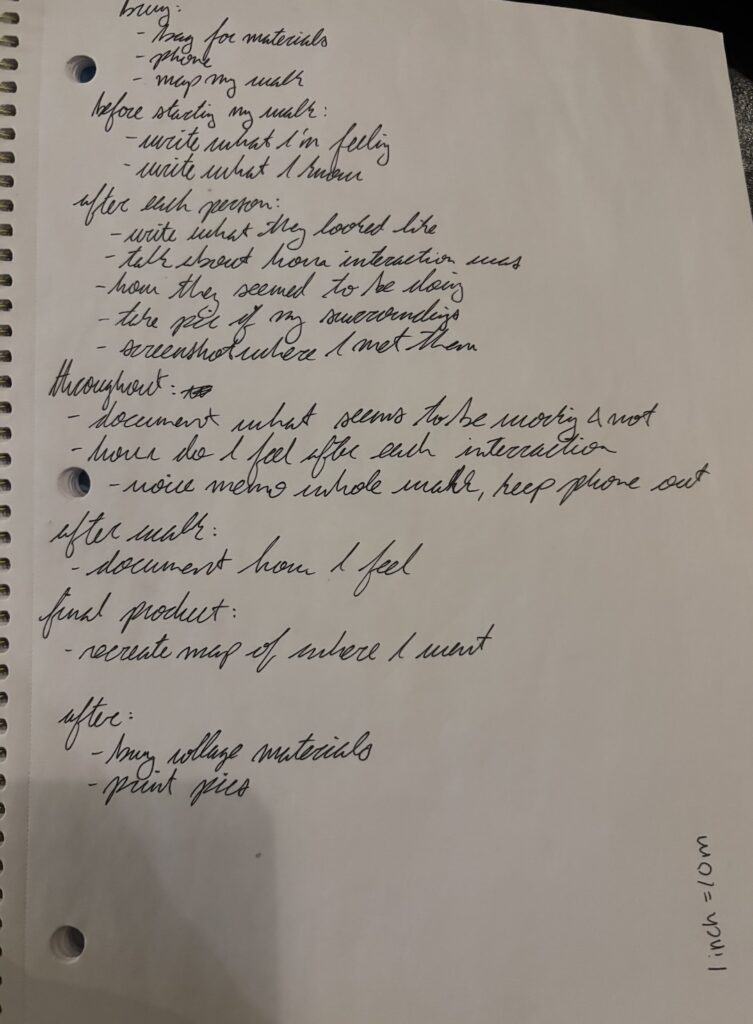 bring:
- bag for materials
- phone
- map my walk
before starting my walk:
- write what I'm feeling
- write what I know
after each person:
- write what they looked like
- talk about how interaction was
- how they seemed to be doing
- take pic of my surroundings
- screenshot where I met them
throughout:
- document what seems to be moving & not
- how do I feel after each interraction
- voice memo whole walk, keep phone out
after walk:
- document how I feel
final product:
- recreate map of where I went
after:
- buy collage materials
- print pics
1 inch = 10m